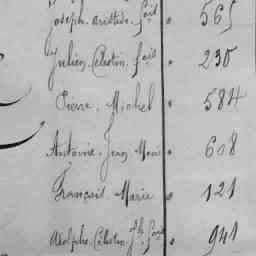 Joseph. Aristide. fçois 565
Julien. Célestin. fçois 230
Pierre. Michel 584
Antoine. Jean. Marie 608
François. Marie 121
Adolphe. Célestin. Jh. 941